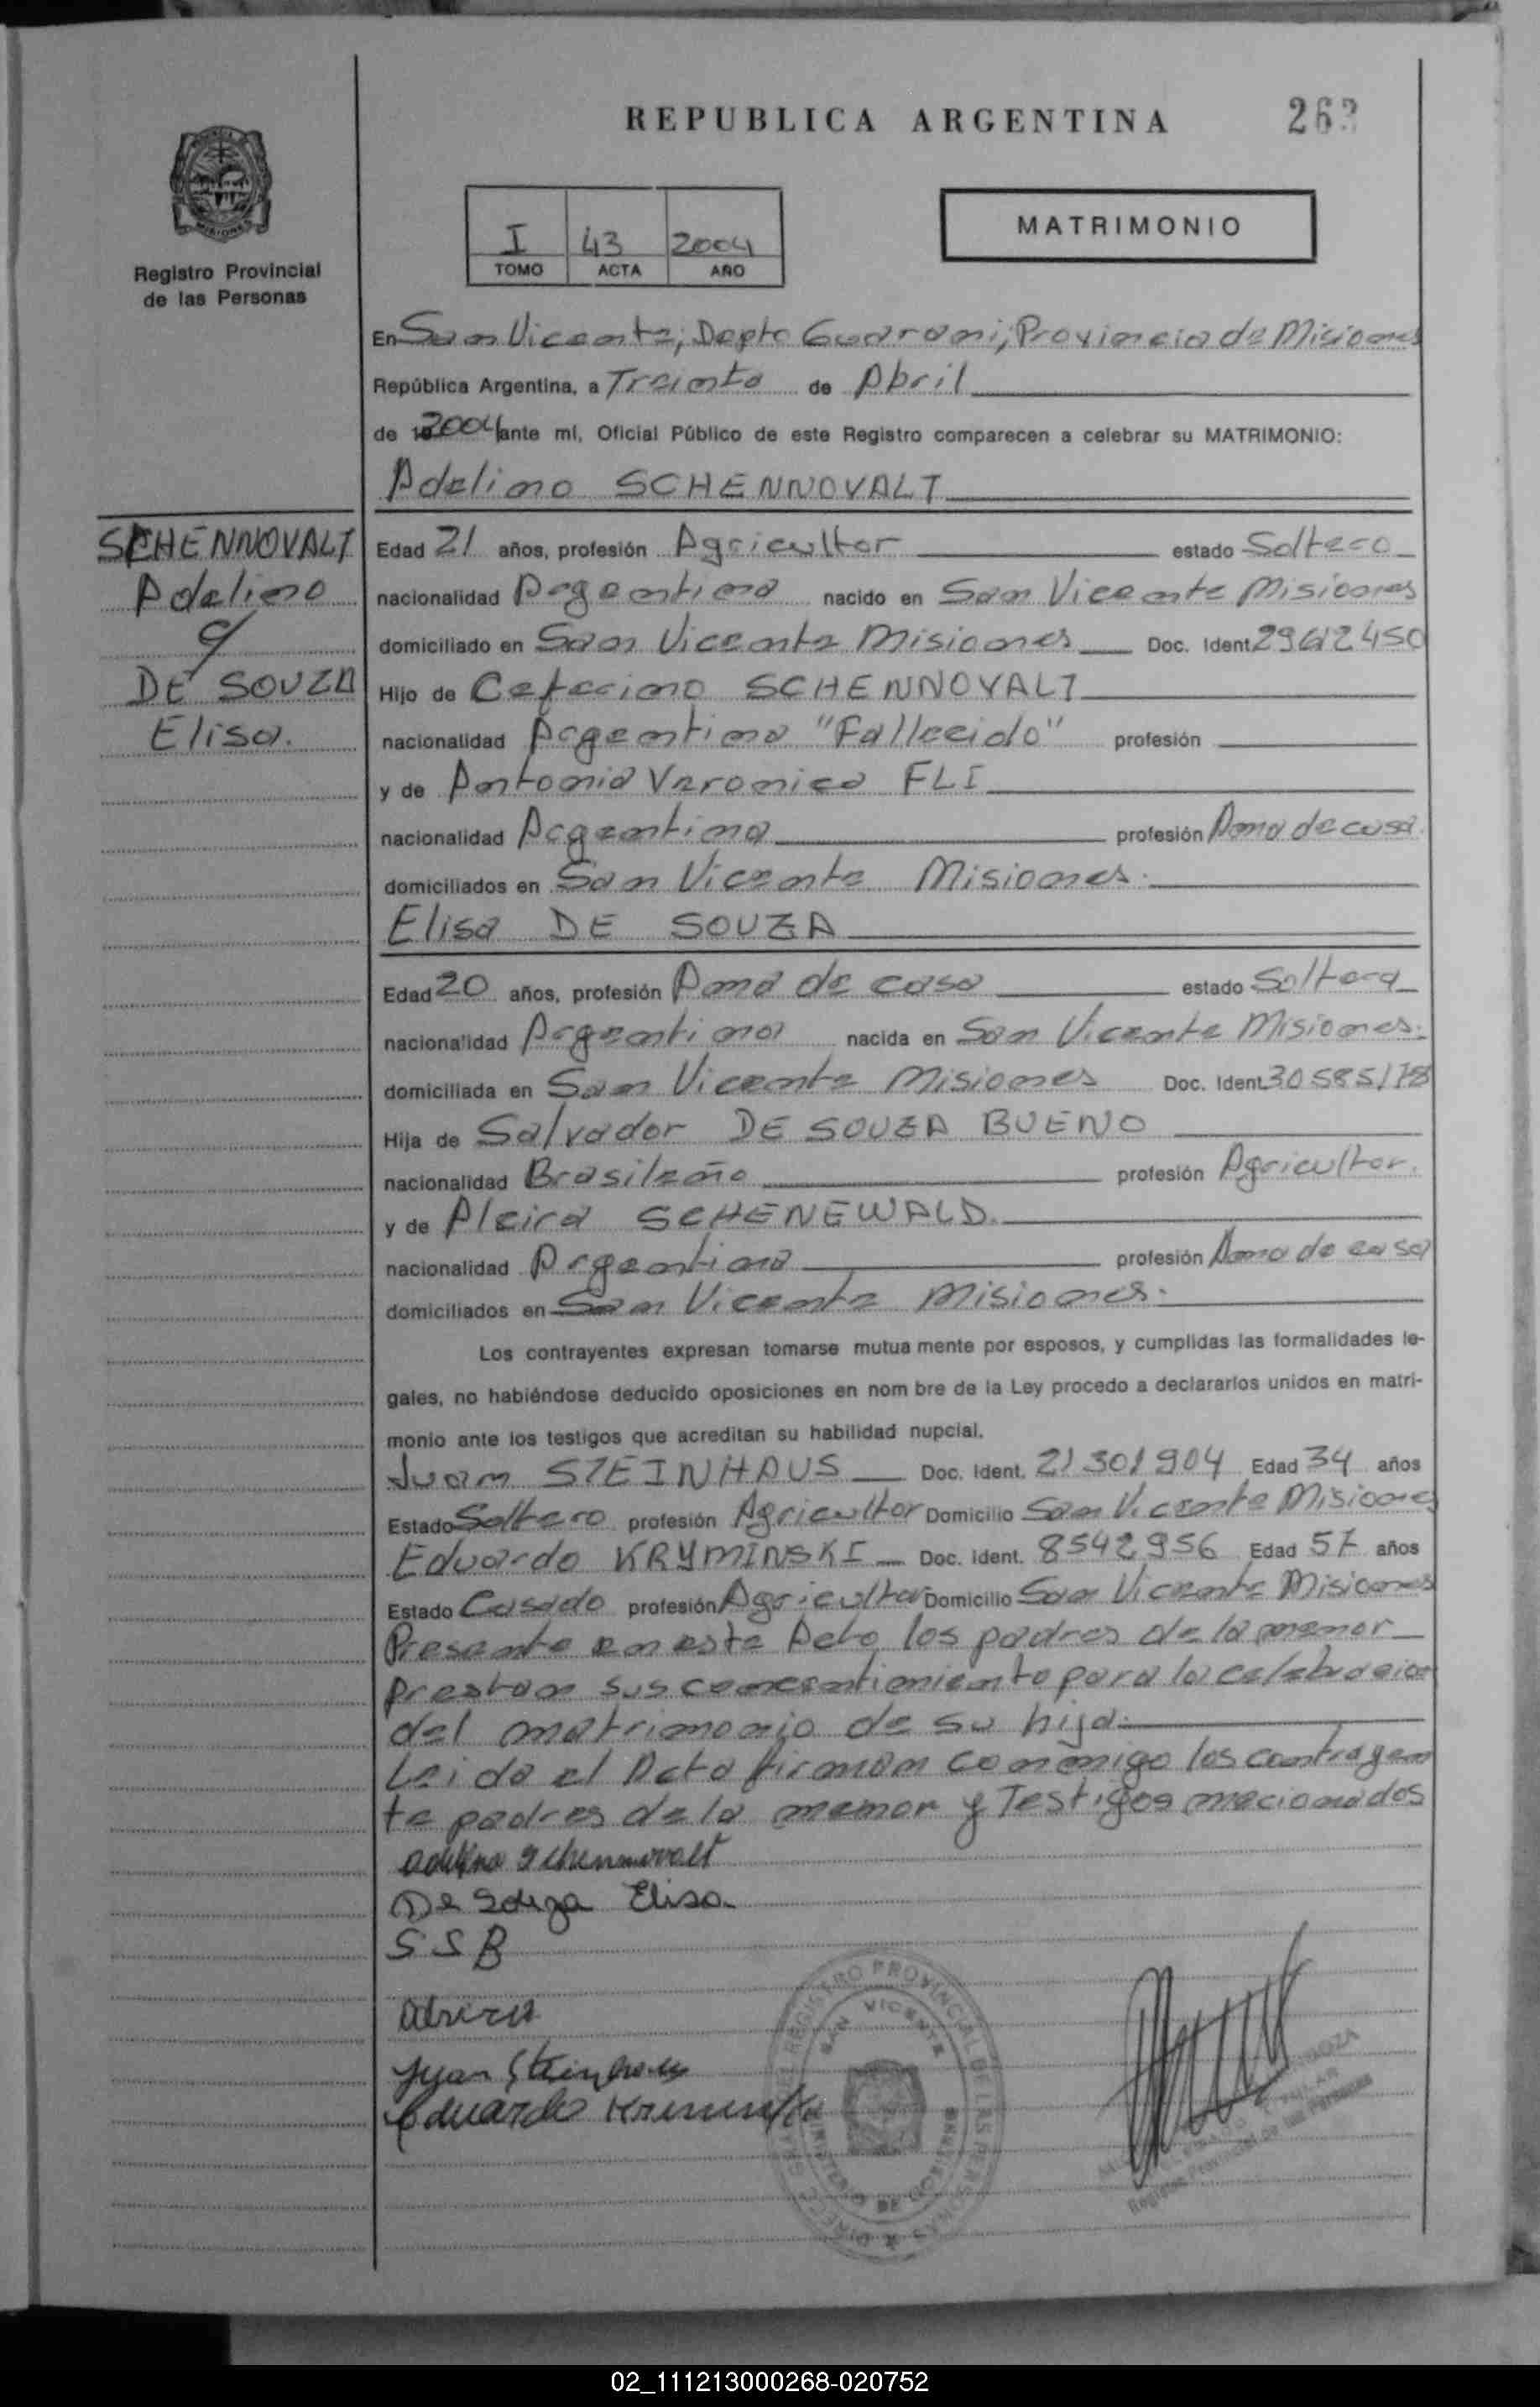 REPUBLICA ARGENTINA
Registro Provincial
de las Personas
I 43 2004
TOMO ACTA AÑO
MATRIMONIO
En San Vicente, Depto Guarani, Provincia de Misiones
República Argentina, a Treinta de Abril
de 2004 ante mí, Oficial Público de este Registro comparecen a celebrar su MATRIMONIO:
Adelino SCHENNOVALT
SCHENNOVALT
Adelino
c/
DE SOUZA
Elisa.
Edad 21 años, profesión Agricultor estado Soltero
nacionalidad Argentina nacido en San Vicente Misiones
domiciliado en San Vicente Misiones Doc. Ident. 29612450
Hijo de Ceferino SCHENNOVALT
nacionalidad Argentino "Fallecido" profesión
y de Antonia Veronica FLI
nacionalidad Argentina profesión Ama de casa.
domiciliados en San Vicente Misiones.
Elisa DE SOUZA
Edad 20 años, profesión Ama de casa estado Soltera
nacionalidad Argentina nacida en San Vicente Misiones.
domiciliada en San Vicente Misiones Doc. Ident. 30585178
Hija de Salvador DE SOUZA BUENO
nacionalidad Brasileño profesión Agricultor.
y de Aleira SCHENEWALD.
nacionalidad Argentina profesión Ama de casa
domiciliados en San Vicente Misiones.
Los contrayentes expresan tomarse mutua mente por esposos, y cumplidas las formalidades le-
gales, no habiéndose deducido oposiciones en nom bre de la Ley procedo a declararlos unidos en matri-
monio ante los testigos que acreditan su habilidad nupcial.
Juan STEINHAUS Doc. Ident. 21301904 Edad 34 años
Estado Soltero profesión Agricultor Domicilio San Vicente Misiones
Eduardo KRYMINSKI Doc. Ident. 8542956 Edad 57 años
Estado Casado profesión Agricultor Domicilio San Vicente Misiones
Presente en este Acto los padres de la menor
prestan sus consentimiento para la celebracion
del matrimonio de su hija.
Leido el Acta firman conmigo los contrayen
te padres de la menor y Testigos mecionados
Adelino Schennovalt
De Souza Elisa
SSB
Juan Steinhaus
Eduardo
REGISTRO PROVINCIAL DE LAS PERSONAS
SAN VICENTE
Registro Provincial de las Personas
02_111213000268-020752